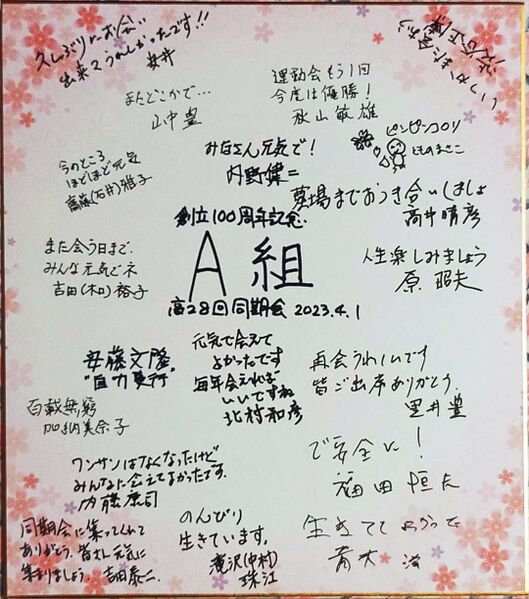 久しぶりにお会い
出来てうれしかったです!!
安井
いつかまた会おう
またどこかで…
山中 豊
運動会もう1回
今度は優勝!
秋山敏雄
ピンピンコロリ
みなさん元気で!
内野健二
今のところ
ほどほど元気
(石井)雅子
墓場までおつき合いしましょ
高井晴彦
創立100周年記念
A組
高28回同期会 2023.4.1
また会う日まで、
みんな元気でネ
吉田(木口)裕子
人生楽しみましょう
原 昭夫
安藤文隆
"自力更行"
元気で会えて
よかったです
毎年会えれば
いいですね
北村和彦
再会うれしいです
皆ご出席ありがとう。
里井豊
百載無窮
加納美奈子
ワンサンはなくなったけど
みんなに会えてよかったです。
内藤康司
ご安全に!
福田恒夫
同期会に集ってくれて
ありがとう。皆さん元気に
集まりましょう。吉田泰二
のんびり
生きています。
滝沢(中村)
珠江
生きてて よかった
青木